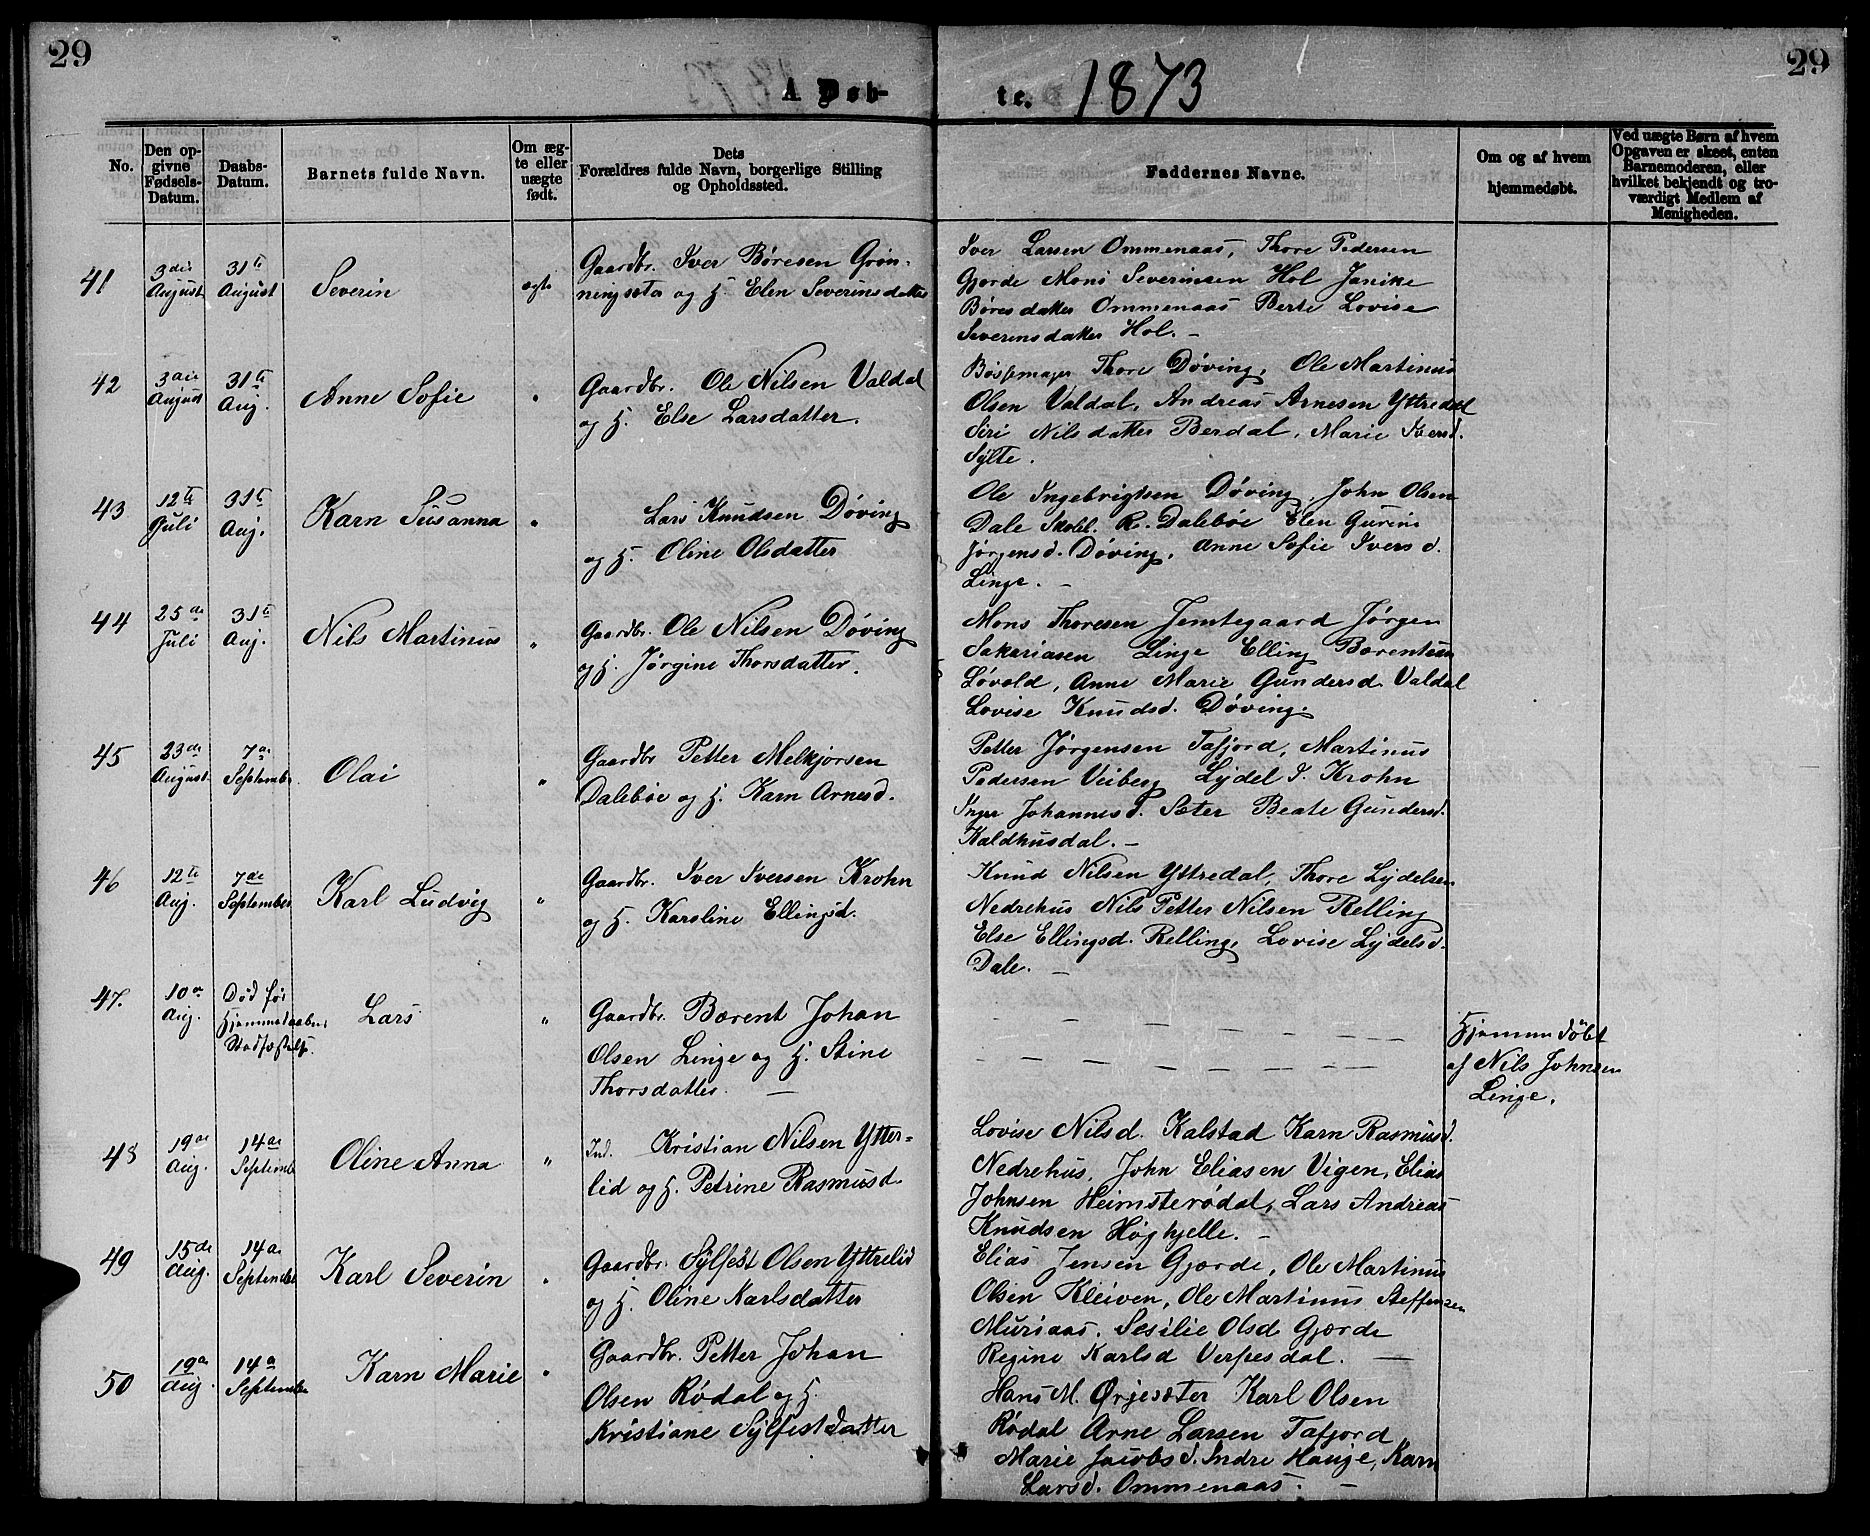 29
29
A Døb-
te.
1873
No.
Den op-
givne
Fødsels-
Datum.
Daabs-
Datum.
Barnets fulde Navn.
Om æg-
te eller
uægte
født.
Dets
Forældres fulde Navn, borgerlige Stilling
og Opholdssted.
Faddernes Navne.
Om og af hvem
hjemmedøbt.
Ved uægte Børn af hvem
Opgaven er skeet, enten
Barnemoderen, eller
hvilket bekjendt og tro-
værdigt Medlem af
Menigheden.
41
3die
August
31te
August
Severin
ægte
Gaardbr. Iver Børesen Grøn-
ningsæter og H. Elen Severinsdatter
Iver Larsen Ommenaas, Thore Pedersen
Gjørde Mons Severinsen Hol Janike
Børesdatter Ommenaas Berte Lovise
Severinsdatter Hol. –
42
3die
August
31te
Aug.
Anne Sofie
"
Gaardbr. Ole Nilsen Valdal
og H. Else Larsdatter.
Bøssemager Thore Døving, Ole Martinus
Olsen Valdal, Andreas Arnesen Yttredal
Siri Nilsdatter Berdal, Marie Iversd.
Sylte.
43
12te
Juli
31te
Aug.
Karn Susanna
"
Lars Knudsen Døving
og H. Oline Olsdatter
Ole Ingebrigtsen Døving, John Olsen
Dale Skolel. R. Dalebøe Elen Gurine
Jørgensd. Døving, Anne Sofie Ivers d.
Linge. –
44
25de
Juli
31te
Aug.
Nils Martinus
"
Gaardbr. Ole Nilsen Døving
og H. Jørgine Thorsdatter.
Mons Thoresen Jemtegaard Jørgen
Sakariasen Linge Elling Bærentsen
Løvold, Anne Marie Gundersd. Valdal
Lovise Knudsd. Døving.
45
23de
August.
7de
Septembr.
Olai
"
Gaardbr Petter Melkjorsen
Dalebøe og H. Karn Arnesd.
Petter Jørgensen Tafjord, Martinus
Pedersen Veiberg Lydel I. Krohn
Inger Johannesd. Sæter Beate Gundersd.
Kaldhusdal. –
46
12te
Aug.
7de
September
Karl Ludvig
"
Gaardbr. Iver Iversen Krohn
og H. Karoline Ellingsd.
Knud Nilsen Yttredal, Thore Lydelsen
Nedrehus Nils Petter Nilsen Relling
Else Ellingsd. Relling, Lovise Lydelsd.
Dale. –
47.
10de
Aug.
Død før
Hjemmedaabens
Stadfæstelse.
Lars
"
Gaardbr. Bærent Johan
Olsen Linge og H. Stine
Thorsdatter. –
Hjemmedøbt
af Nils Johnsen
Linge.
48
19de
Aug.
14de
Septembr
Oline Anna
"
Ind. Kristian Nilsen Ytter-
lid og H. Petrine Rasmusd.
Lovise Nilsd. Kalstad Karn Rasmusd.
Nedrehus, John Eliasen Vigen, Elias
Johnsen Heimsterødal, Lars Andreas
Knudsen Høghjelle. –
49
15de
Aug.
14de
September
Karl Severin
"
Gaardbr. Sylfest Olsen Yttrelid
og H. Oline Karlsdatter
Elias Jensen Gjørde, Ole Martinus
Olsen Kleiven, Ole Martinus Steffensen
Muriaas. Sesilie Olsd Gjørde
Regine Karlsd Verpesdal. –
50
19de
Aug
14de
September
Karn Marie
"
Gaardbr. Petter Johan
Olsen Rødal og H.
Kristiane Sylfestdatter
Hans M. Ørjesæter Karl Olsen
Rødal Arne Larsen Tafjord
Marie Jacobsd. Indre Hauge, Karn
Larsd. Ommenaas. –